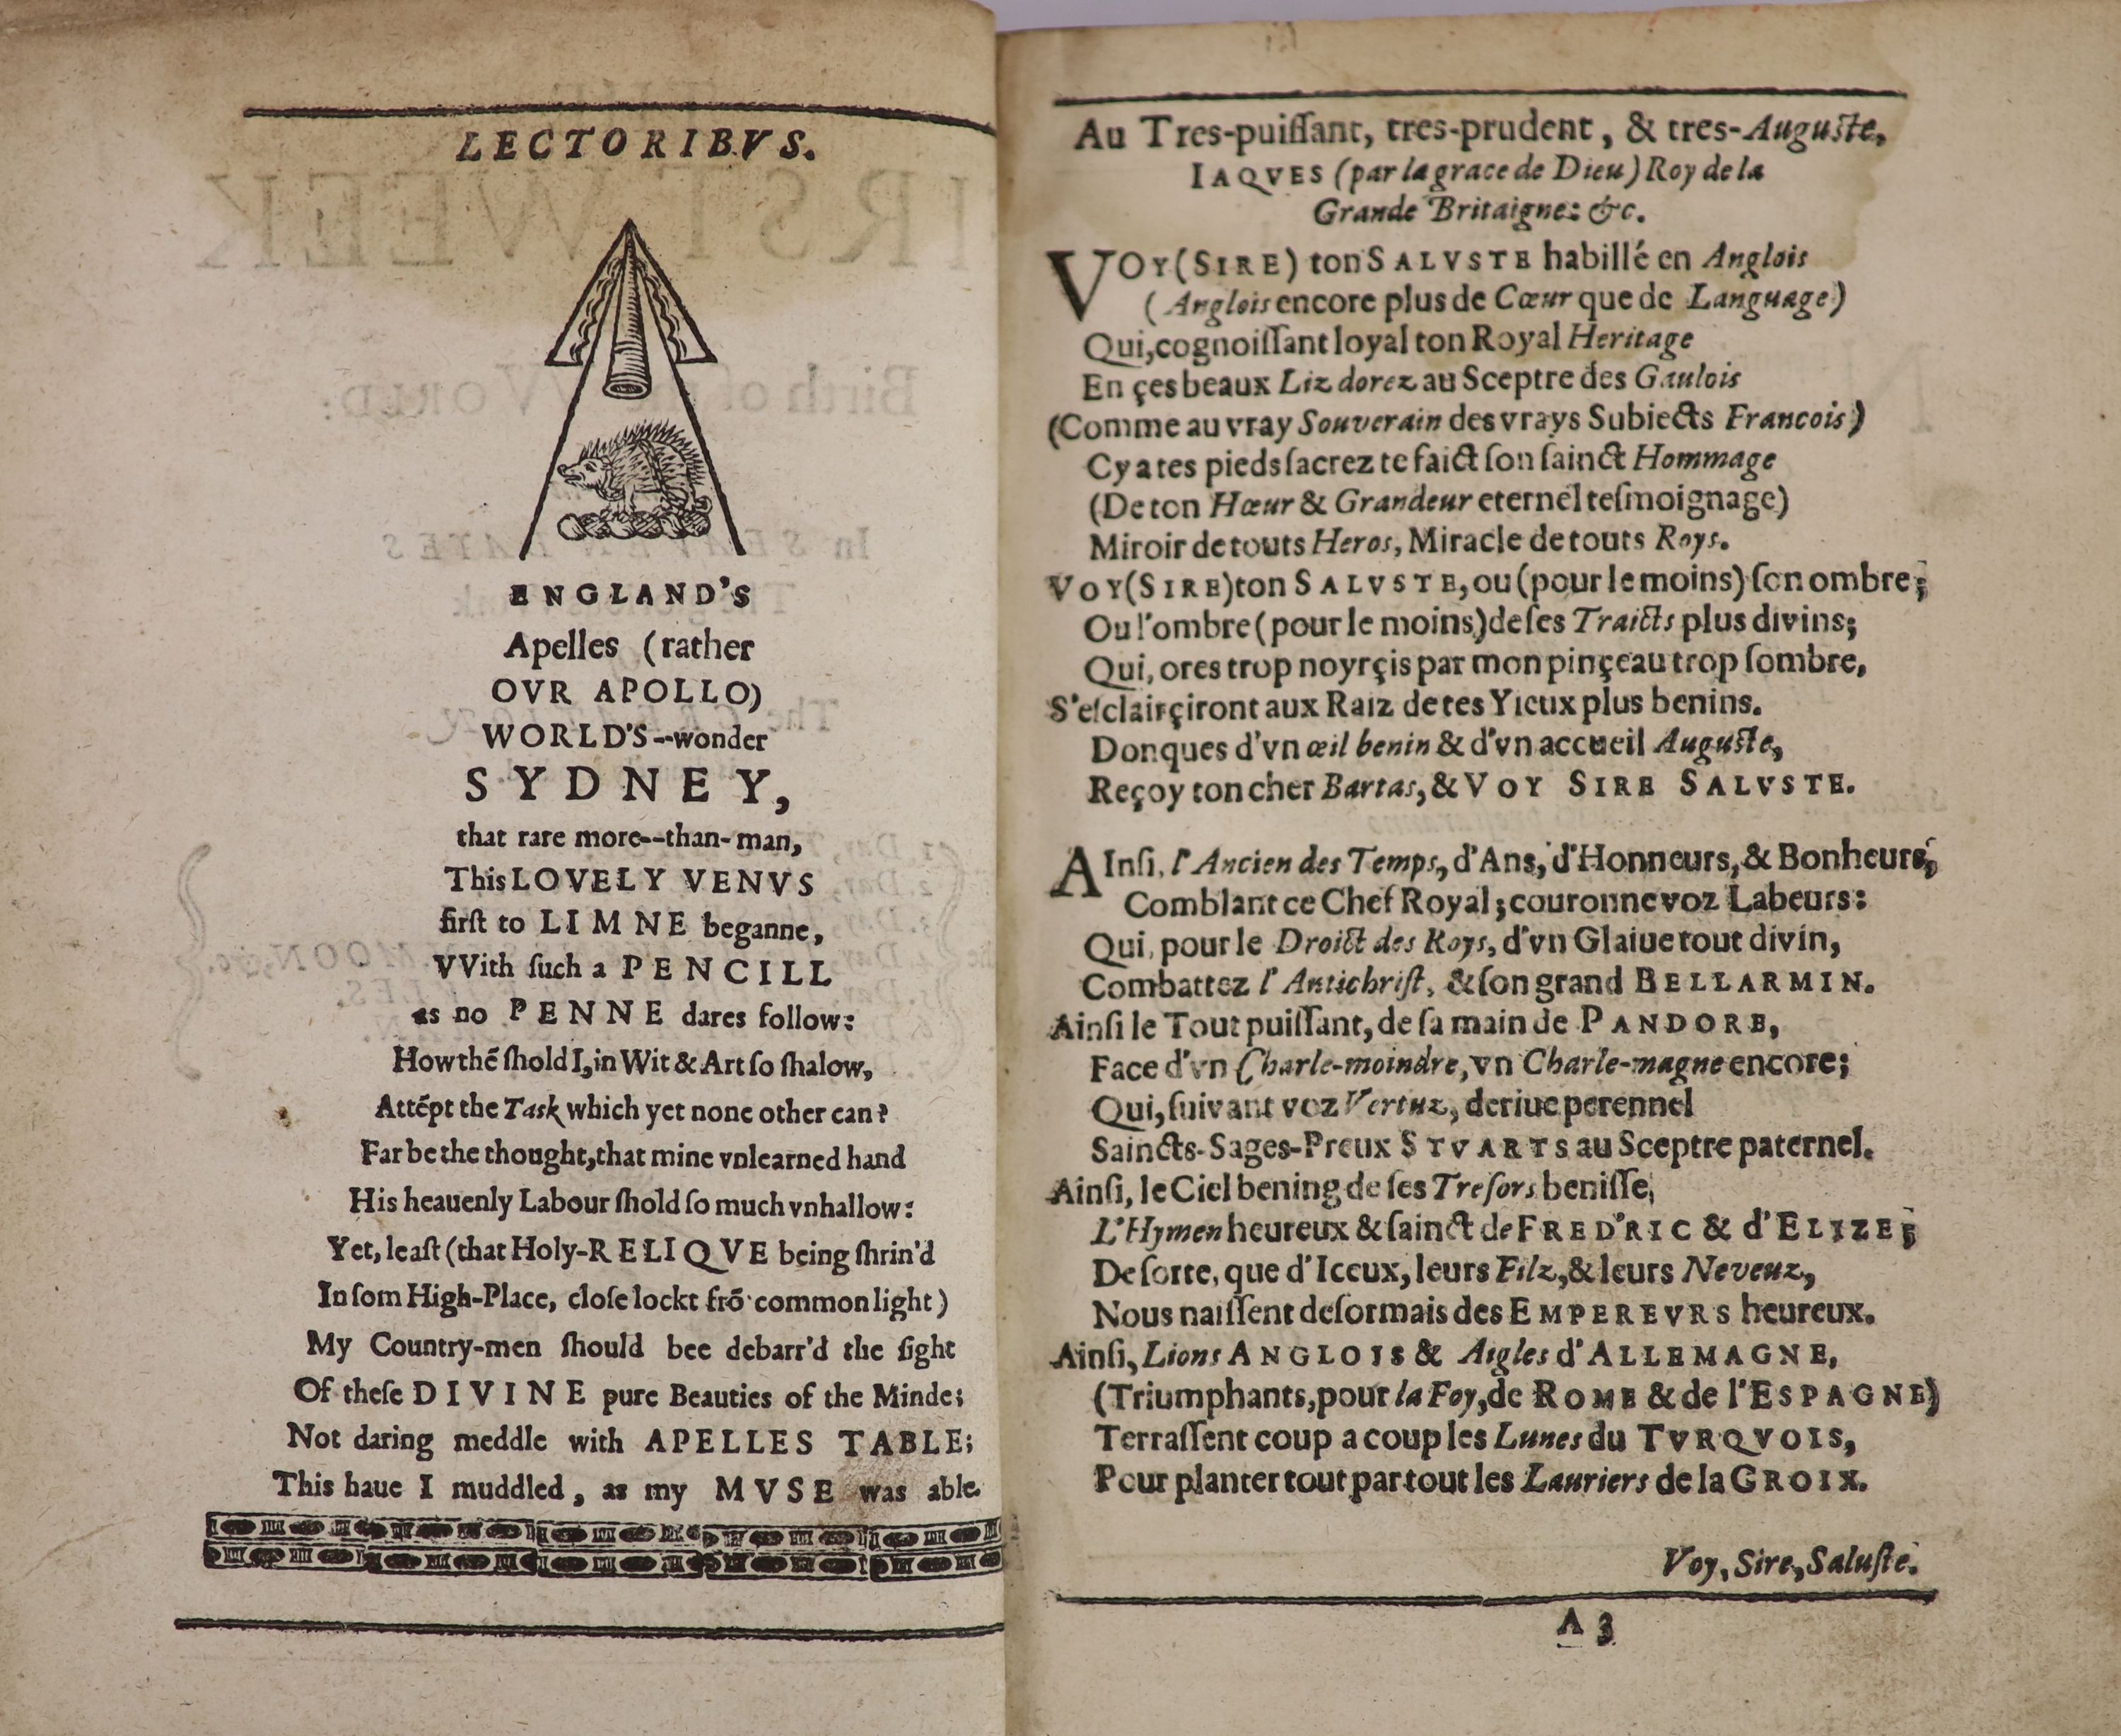 LECTORIBVS.
ENGLAND'S
Apelles (rather
OVR APOLLO)
WORLD'S--wonder
SYDNEY,
that rare more--than-man,
This LOVELY VENVS
firſt to LIMNE beganne,
VVith ſuch a PENCILL
as no PENNE dares follow:
How thẽ ſhold I, in Wit & Art ſo ſhalow,
Attẽpt the Task which yet none other can?
Far be the thought, that mine vnlearned hand
His heauenly Labour ſhold ſo much vnhallow:
Yet, leaſt (that Holy-RELIQVE being ſhrin'd
In ſom High-Place, cloſe lockt frõ common light)
My Country-men ſhould bee debarr'd the ſight
Of theſe DIVINE pure Beauties of the Minde;
Not daring meddle with APELLES TABLE;
This haue I muddled, as my MVSE was able.
Au Tres-puiſſant, tres-prudent, & tres-Auguſte,
IAQVES (par la grace de Dieu) Roy de la
Grande Britaigne: &c.
VOY (SIRE) ton SALVSTE habillé en Anglois
(Anglois encore plus de Cœur que de Language)
Qui, cognoiſſant loyal ton Royal Heritage
En çes beaux Liz dorez au Sceptre des Gaulois
(Comme au vray Souverain des vrays Subiects Francois)
Cy a tes pieds ſacrez te faict ſon ſainct Hommage
(De ton Hœur & Grandeur eternel teſmoignage)
Miroir de touts Heros, Miracle de touts Roys.
VOY (SIRE) ton SALVSTE, ou (pour le moins) ſon ombre;
Ou l'ombre (pour le moins) de ſes Traicts plus divins;
Qui, ores trop noyrçis par mon pinçeau trop ſombre,
S'eſclairçiront aux Raiz de tes Yieux plus benins.
Donques d'vn œil benin & d'vn accueil Auguſte,
Reçoy ton cher Bartas, & VOY SIRE SALVSTE.
AInſi, l'Ancien des Temps, d'Ans, d'Honneurs, & Bonheurs,
Comblant ce Chef Royal; couronne voz Labeurs:
Qui, pour le Droict des Roys, d'vn Glaiue tout divin,
Combattez l'Antichriſt, & ſon grand BELLARMIN.
Ainſi le Tout puiſſant, de ſa main de PANDORE,
Face d'vn Charle-moindre, vn Charle-magne encore;
Qui, ſuivant voz Vertuz, deriue perennel
Saincts-Sages-Preux STVARTS au Sceptre paternel.
Ainſi, le Ciel bening de ſes Treſors beniſſe,
L'Hymen heureux & ſainct de FRED'RIC & d'ELIZE;
De ſorte, que d'Iceux, leurs Filz, & leurs Neveuz,
Nous naiſſent deſormais des EMPEREVRS heureux.
Ainſi, Lions ANGLOIS & Aigles d'ALLEMAGNE,
(Triumphants, pour la Foy, de ROME & de l'ESPAGNE)
Terraſſent coup a coup les Lunes du TVRQVOIS,
Pour planter tout par tout les Lauriers de la CROIX.
Voy, Sire, Saluſte.
A 3